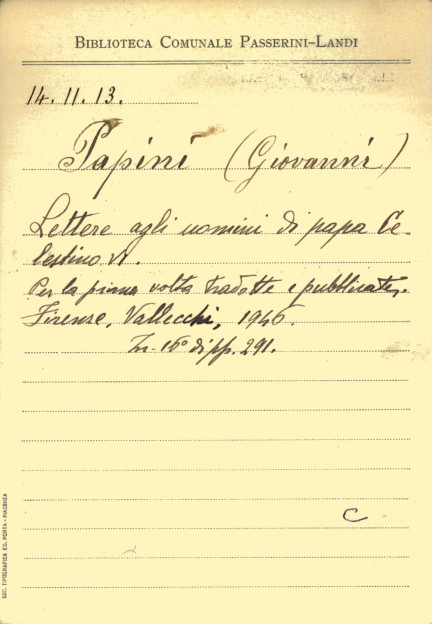 BIBLIOTECA COMUNALE PASSERINI-LANDI
14.11.13.
Papini (Giovanni)
Lettere agli uomini di papa Ce-
lestino VI.
Per la prima volta tradotte e pubblicate.
Firenze, Vallecchi, 1946.
In-16° di pp. 291.
C
SOC. TIPOGRAFICA ED. PORTA - PIACENZA